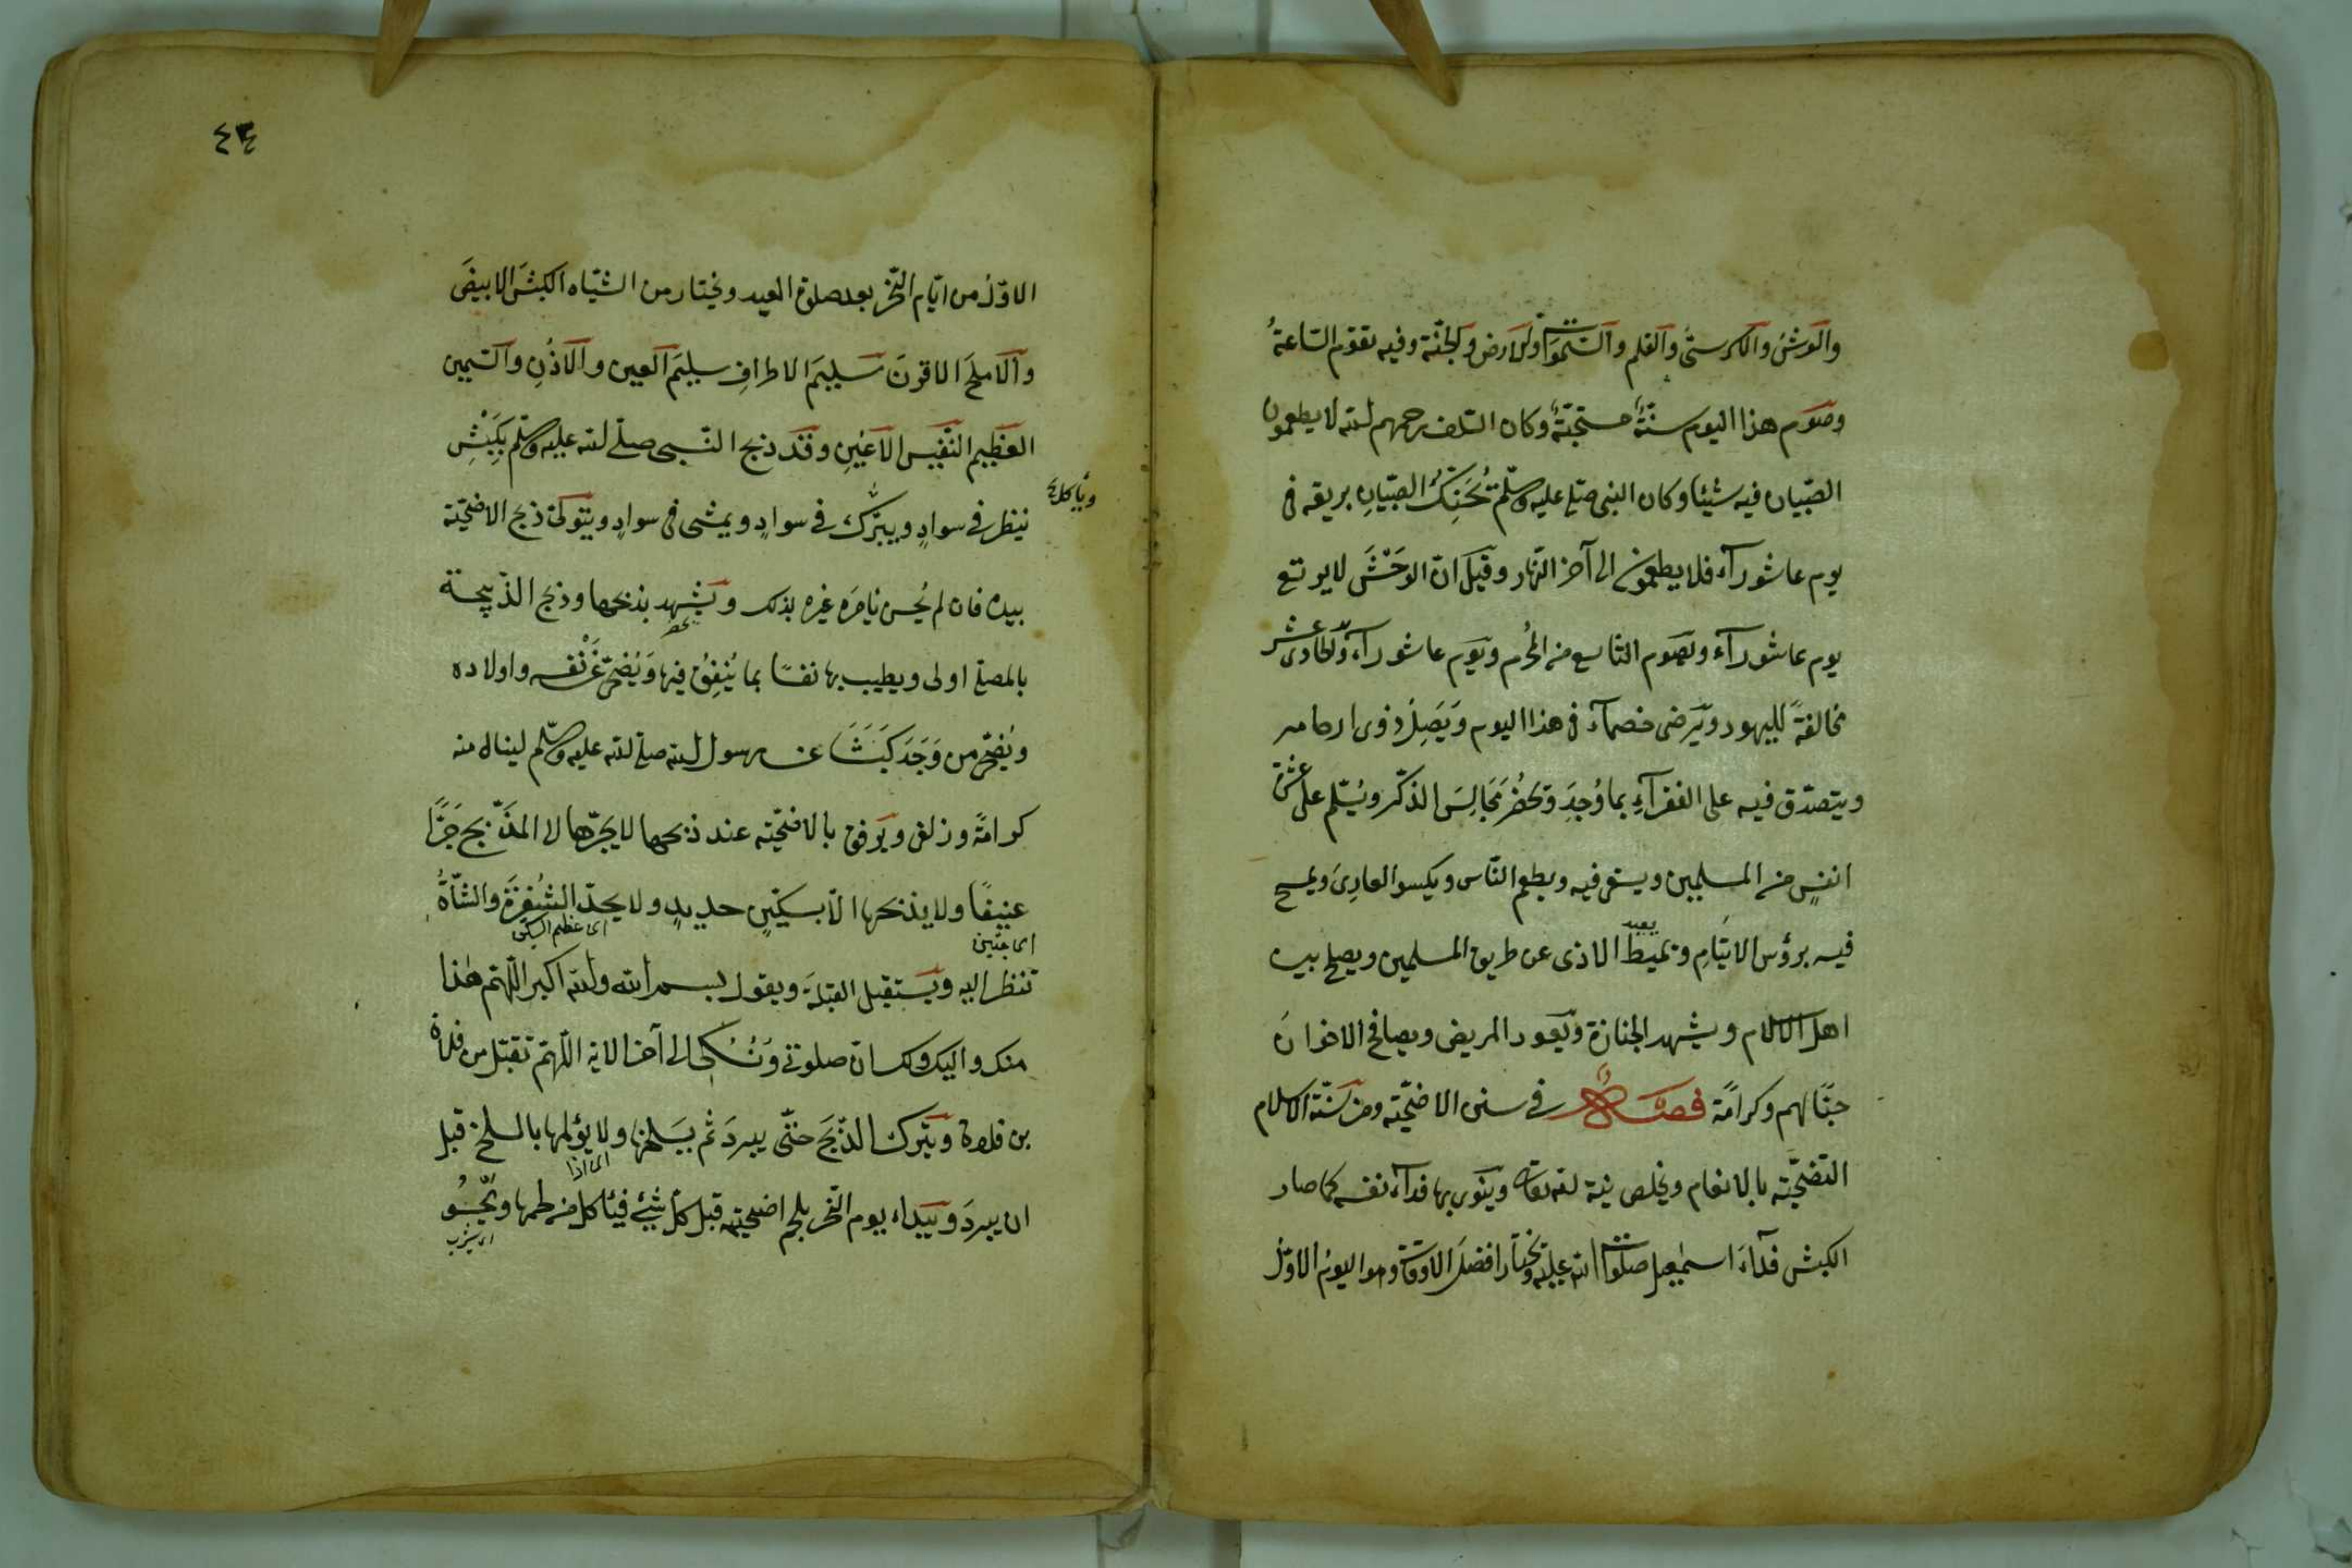 والعرش والكرسىّ والقلم والسّموات والارض والجنّة وفيه تقوم السّاعةُ
وصوم هذا اليوم سنّةٌ مستحبّةٌ وكان السّلف رحمهم الله لا يطعمون
الصّبيان فيه شيئا وكان النبى صلى عليه وسلّم يُحَنِّكُ الصّبيانِ بريقه فى
يوم عاشورآء فلا يطعمون الى آخر النّهار وقيل انّ الوَحْشَ لا يرتع
يوم عاشورآء ويصوم التّاسع من المحُرم ويَوم عاشورآء والحادى عشر
مخالفةً لليهود ويَرضى خصمآءَ فى هذا اليوم وَيَصِلُ ذوى ارحامه
ويتصدّق فيه على الفقرآءِ بما وُجِدَ ويحضُرُ مَجَالِسَ الذّكر ويُسّلم على عشرة
انفسٍ من المسلمين ويسقى فيه ويطعم النّاس ويكسوا العارِىَ ويمسح
فيه برؤس الايتَامِ ويُميط الاذى عن طريق المسلمين ويصلح بين
يبعد
اهل الاسلام ويشهد الجنازة ويَعود المريض ويصافح الاخوانَ
حبّا لهم وكرامًة فصلٌ فى سنن الاضحيّة ومن سَنّة الاسلام
التّضحيّة بالانعام ويخلص نية لله تعالى وينوى بها فدآء نفسه كما صار
الكبش فدآءَ اسمٰعيل صلوات الله عليه ويختار افضلَ الاوقات وهو اليومُ الاوّلُ
٤٣
الاوّلُ من ايّام النّحر بعد صلوة العيد ويختار من الشّياه الكبشَ الابيضَ
والاملحَ الاقرنَ سَليمَ الاطرافِ سليمَ العين والاذُنِ والسّمين
العظيم النّفيس الاعْيَنِ وقد ذبح النّبى صلّى الله عليه وسلّم بِكَبْشِ
ينظر فى سوادٍ ويبرُك فى سوادٍ ويمشى فى سوادٍ ويتوَلى ذبح الاضحيّة
ويأكل
بيده فان لم يُحسن يامرَه غيره بذلك ويَشهد بذبحها وذبح الذّبيحة
بالمصلى اولى ويطيب بها نفسًا بما يُنفِقُ فيها وَيُضحّى عَنْ نفسه واولاده
ويُضحّى من وَجَدَ كَبْشًا عن رسول الله صلى الله عليه وسلّم لينال منه
كرامًة وزلفى ويَرفق بالاضحيّة عند ذبحها لا يجرّها الى المذّبح جَرًّا
عنيفًا ولا يذبحها الاّ بسكّينٍ حديدٍ ولا يحدّ الشُفرَةَ والشّاةُ
اى عظيم السكين
تنظر اليه ويَستقبل القبلة ويقول بسم الله والله اكبر اللّهمّ هذا
منك واليك ولك انّ صلوتى وَنُسُكى الى آخر الاية اللّهمّ تقبّل من فلان
بن فلان ويَترك الذّبحَ حتّى يبردَ ثم يَسلخها ولا يؤلمها بالسلخ قبل
ان يبردَ ويَبداء يوم النّحر بلحم اضحيّته قبل كلّ شئٍ فيأكل من لحمها ويحْسُو
اى يشرب